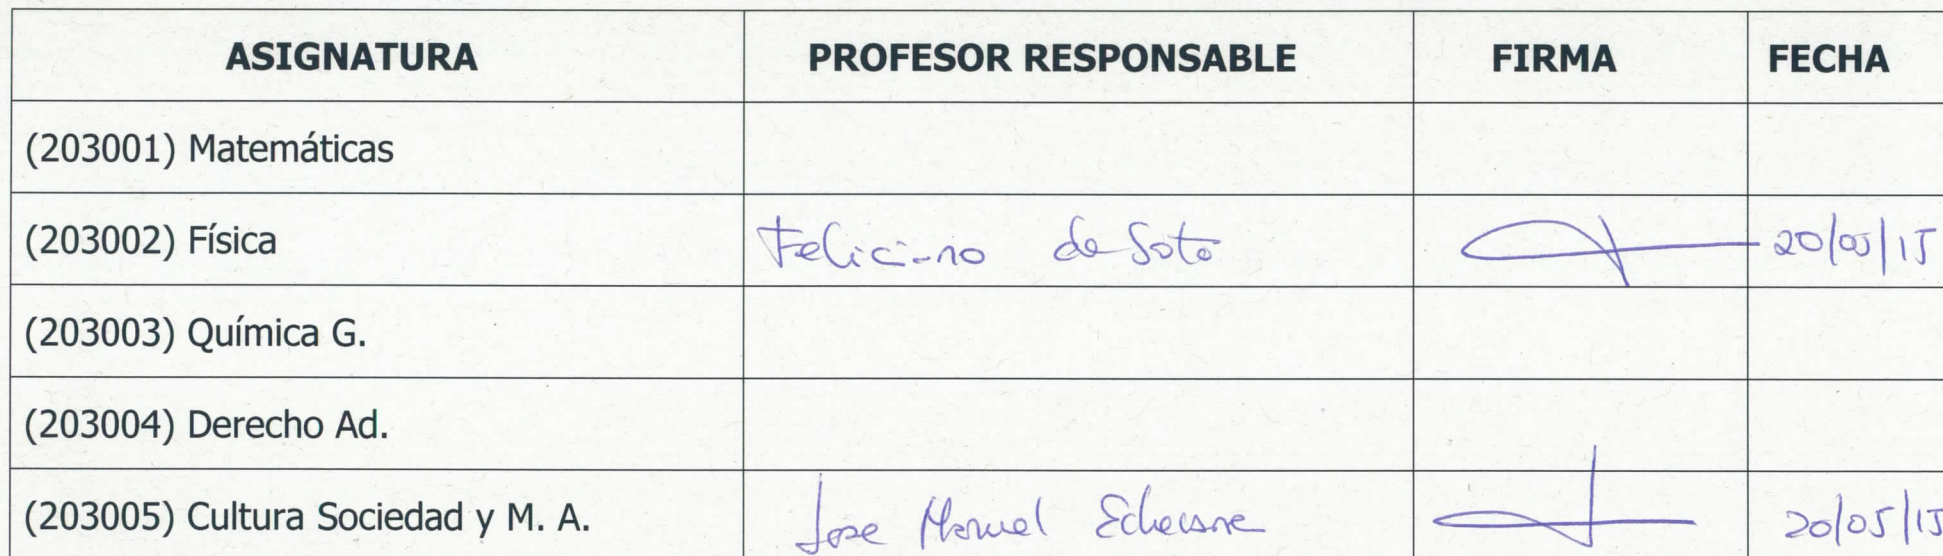 ASIGNATURA PROFESOR RESPONSABLE FIRMA FECHA
(203001) Matemáticas
(203002) Física Feliciano de Soto 20/05/15
(203003) Química G.
(203004) Derecho Ad.
(203005) Cultura Sociedad y M. A. Jose Manuel 20/05/15